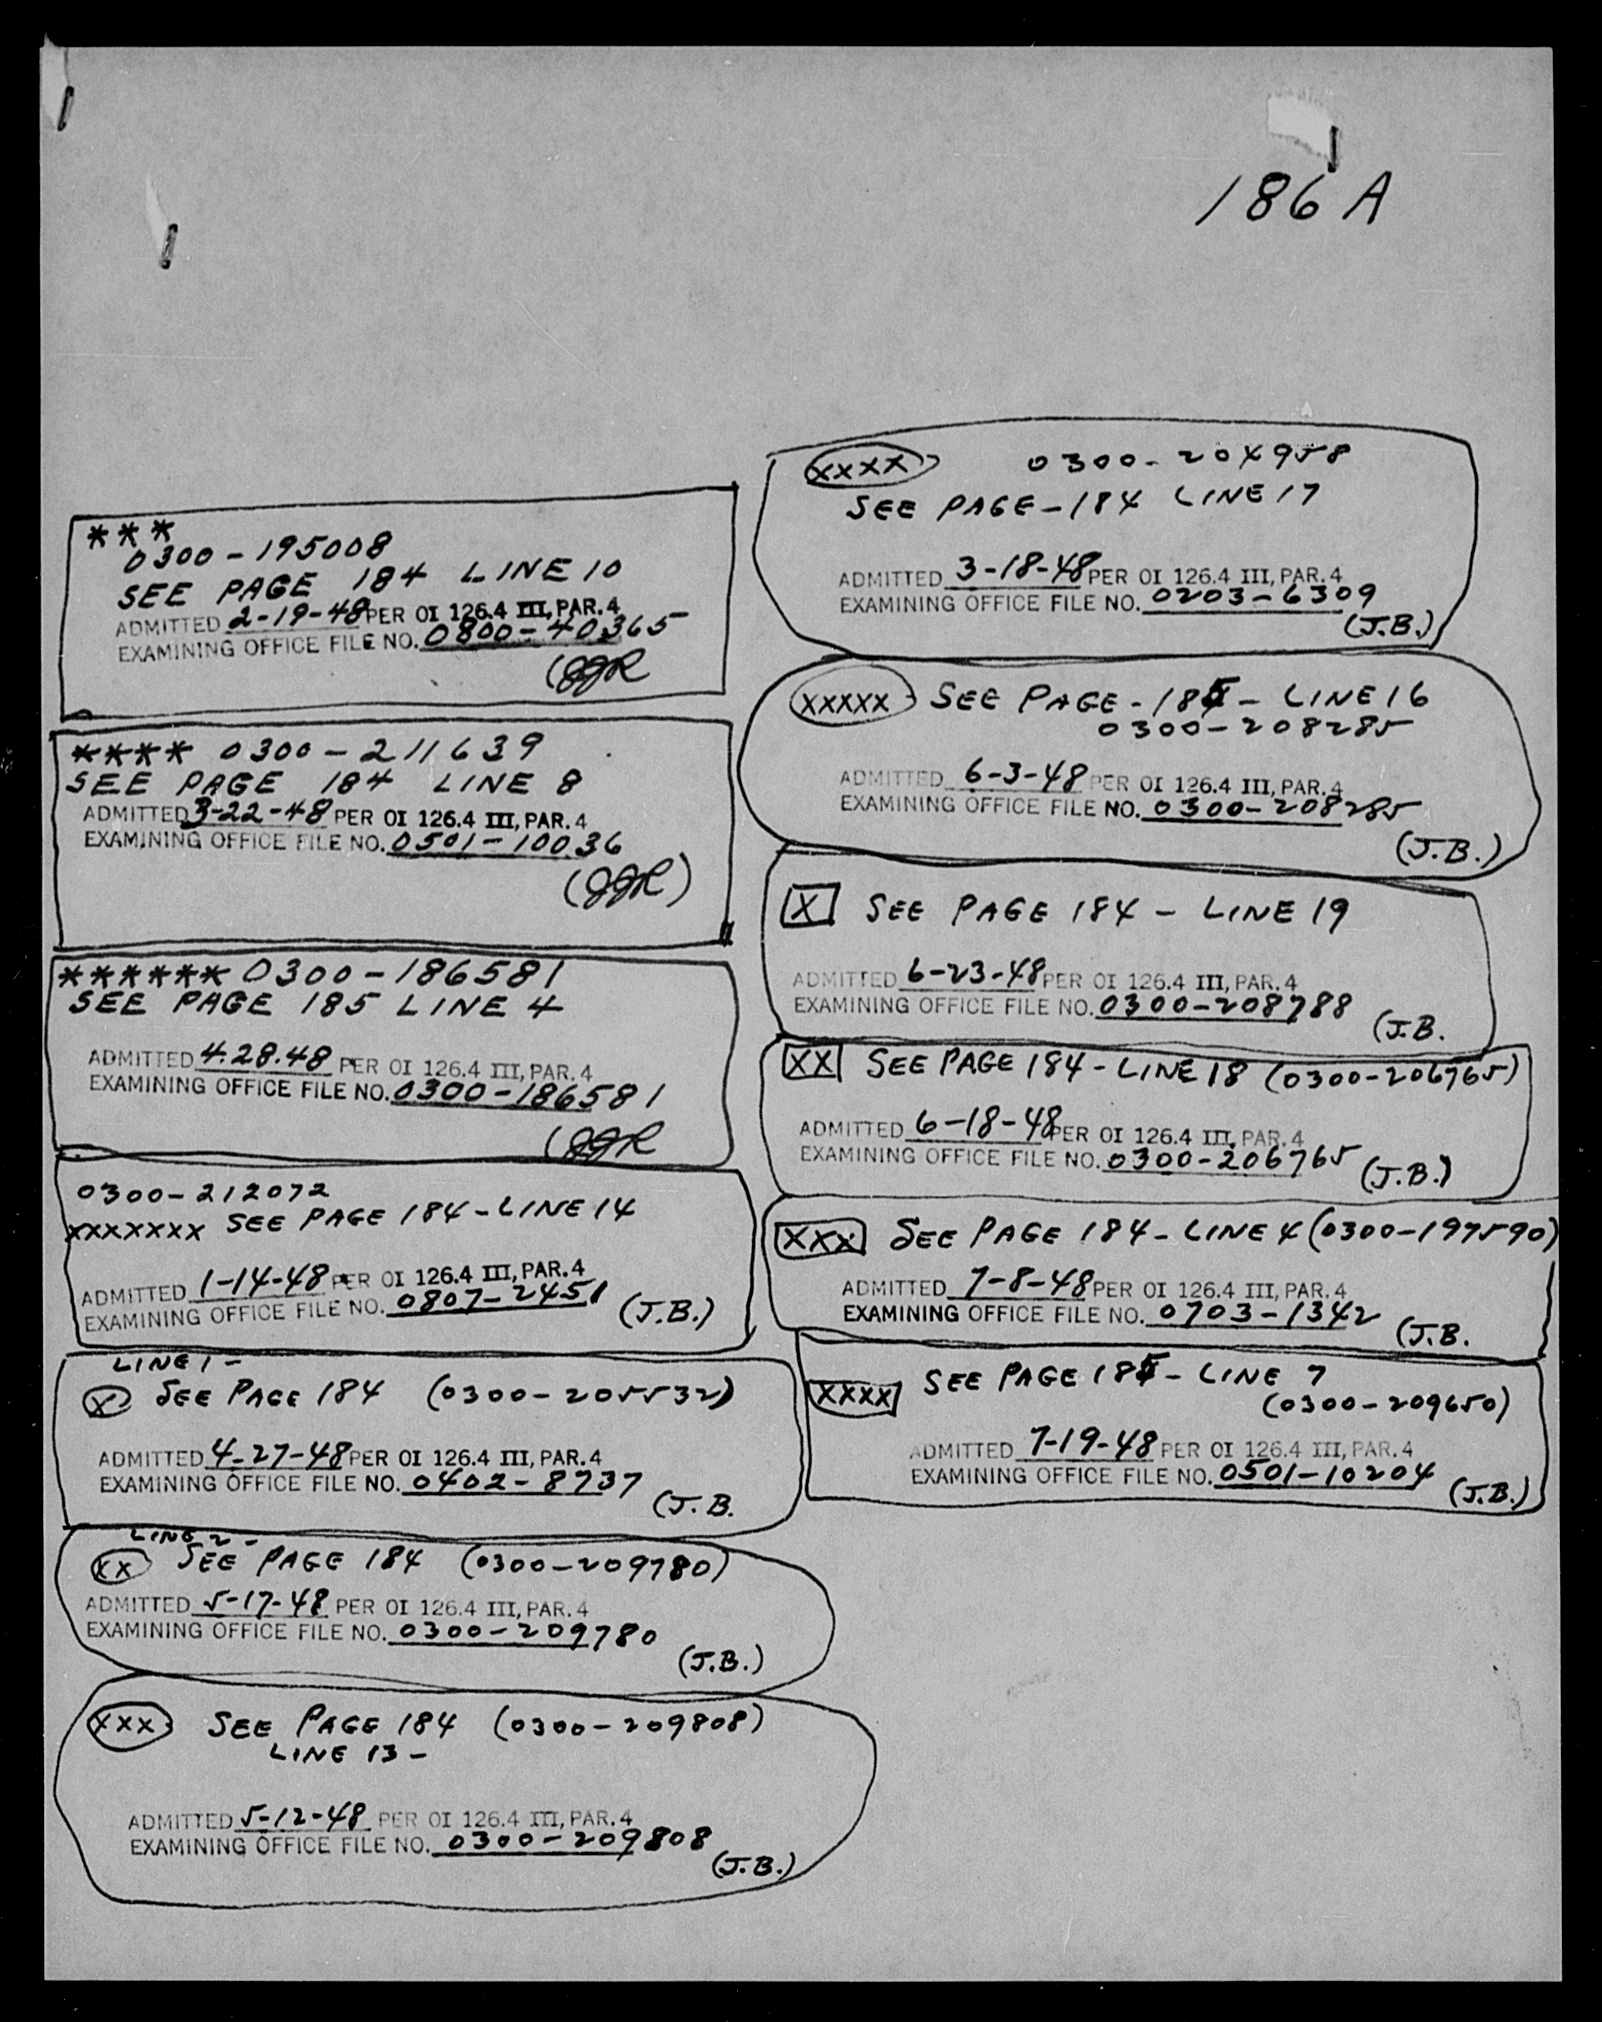 186 A
***
0300-195008
SEE PAGE 184 LINE 10
ADMITTED 2-19-48 PER OI 126.4 III, PAR. 4
EXAMINING OFFICE FILE NO. 0800-40365
(JJR
**** 0300-211639
SEE PAGE 184 LINE 8
ADMITTED 3-22-48 PER OI 126.4 III, PAR. 4
EXAMINING OFFICE FILE NO. 0501-10036
(JJR)
****** 0300-186581
SEE PAGE 185 LINE 4
ADMITTED 4.28.48 PER OI 126.4 III, PAR. 4
EXAMINING OFFICE FILE NO. 0300-186581
(JJR
0300-212072
XXXXXXX SEE PAGE 184-LINE 14
ADMITTED 1-14-48 PER OI 126.4 III, PAR. 4
EXAMINING OFFICE FILE NO. 0807-2451 (J.B.)
LINE 1-
X SEE PAGE 184 (0300-205532)
ADMITTED 4-27-48 PER OI 126.4 III, PAR. 4
EXAMINING OFFICE FILE NO. 0402-8737
(J.B.
LINE 2-
XX SEE PAGE 184 (0300-209780)
ADMITTED 5-17-48 PER OI 126.4 III, PAR. 4
EXAMINING OFFICE FILE NO. 0300-209780
(J.B.)
XXX SEE PAGE 184 (0300-209808)
LINE 13-
ADMITTED 5-12-48 PER OI 126.4 III, PAR. 4
EXAMINING OFFICE FILE NO. 0300-209808
(J.B.)
XXXX 0300-204958
SEE PAGE-184 LINE 17
ADMITTED 3-18-48 PER OI 126.4 III, PAR. 4
EXAMINING OFFICE FILE NO. 0203-6309
(J.B.)
XXXXX SEE PAGE-185-LINE 16
0300-208285
ADMITTED 6-3-48 PER OI 126.4 III, PAR. 4
EXAMINING OFFICE FILE NO. 0300-208285
(J.B.)
X SEE PAGE 184 - LINE 19
ADMITTED 6-23-48 PER OI 126.4 III, PAR. 4
EXAMINING OFFICE FILE NO. 0300-208788
(J.B.
XX SEE PAGE 184-LINE 18 (0300-206765)
ADMITTED 6-18-48 PER OI 126.4 III, PAR. 4
EXAMINING OFFICE FILE NO. 0300-206765 (J.B.)
XXX SEE PAGE 184-LINE 4 (0300-197590)
ADMITTED 7-8-48 PER OI 126.4 III, PAR. 4
EXAMINING OFFICE FILE NO. 0703-1342
(J.B.
XXXX SEE PAGE 185-LINE 7
(0300-209650)
ADMITTED 7-19-48 PER OI 126.4 III, PAR. 4
EXAMINING OFFICE FILE NO. 0501-10204
(J.B.)